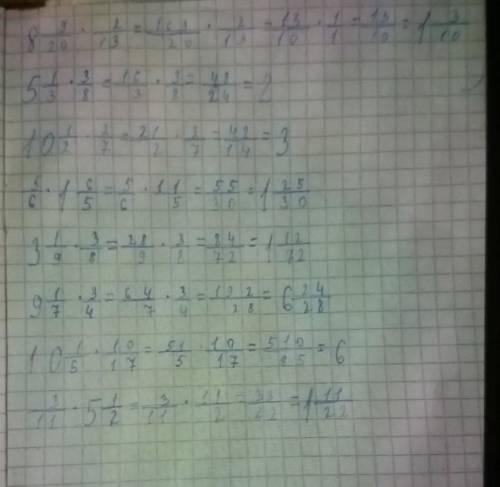 8 9/20 · 2/13 = 169/20 · 2/13 = 13/10 · 1/1 = 13/10 = 1 3/10
5 1/3 · 3/8 = 16/3 · 3/8 = 48/24 = 2
10 1/2 · 2/7 = 21/2 · 2/7 = 42/14 = 3
5/6 · 1 6/5 = 5/6 · 11/5 = 55/30 = 1 25/30
3 1/9 · 3/8 = 28/9 · 3/8 = 84/72 = 1 12/72
9 1/7 · 3/4 = 64/7 · 3/4 = 192/28 = 6 24/28
10 1/5 · 10/17 = 51/5 · 10/17 = 510/85 = 6
3/11 · 5 1/2 = 3/11 · 11/2 = 33/22 = 1 11/22